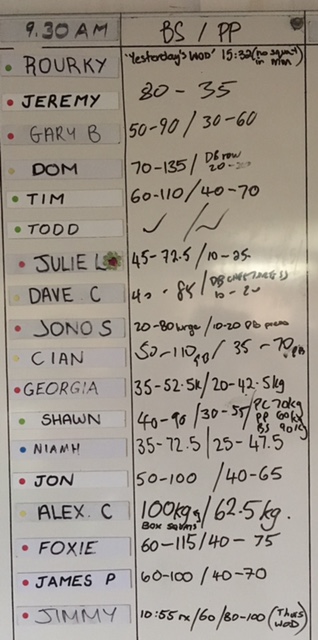 9.30 AM BS / PP
ROURKY "Yesterday's WOD" 15:32 (no squat
in mm
JEREMY 80 - 35
GARY B 50-90 / 30-60
DOM 70-135 / DB row
20-
TIM 60-110 / 40-70
TODD ✓ / ✓
JULIE L 45-72.5 / 10-25.
DAVE C 40 - 85 / DB
10 - 20
JONO S 20-80 / 10-20 DB press
CIAN 50-110 PB / 35 - 70 PB
GEORGIA 35-52.5k / 20-42.5kg
SHAWN 40-90 / 30-55 / PC 70kg
PP 60kg
BS 90kg
NIAMH 35-72.5 / 25-47.5
JON 50-100 / 40-65
ALEX. C 100kg / 62.5kg.
BOX SQUATS
FOXIE 60-115 / 40- 75
JAMES P 60-100 / 40-70
JIMMY 10:55 rx / 60 / 80-100 (Thurs
WOD)